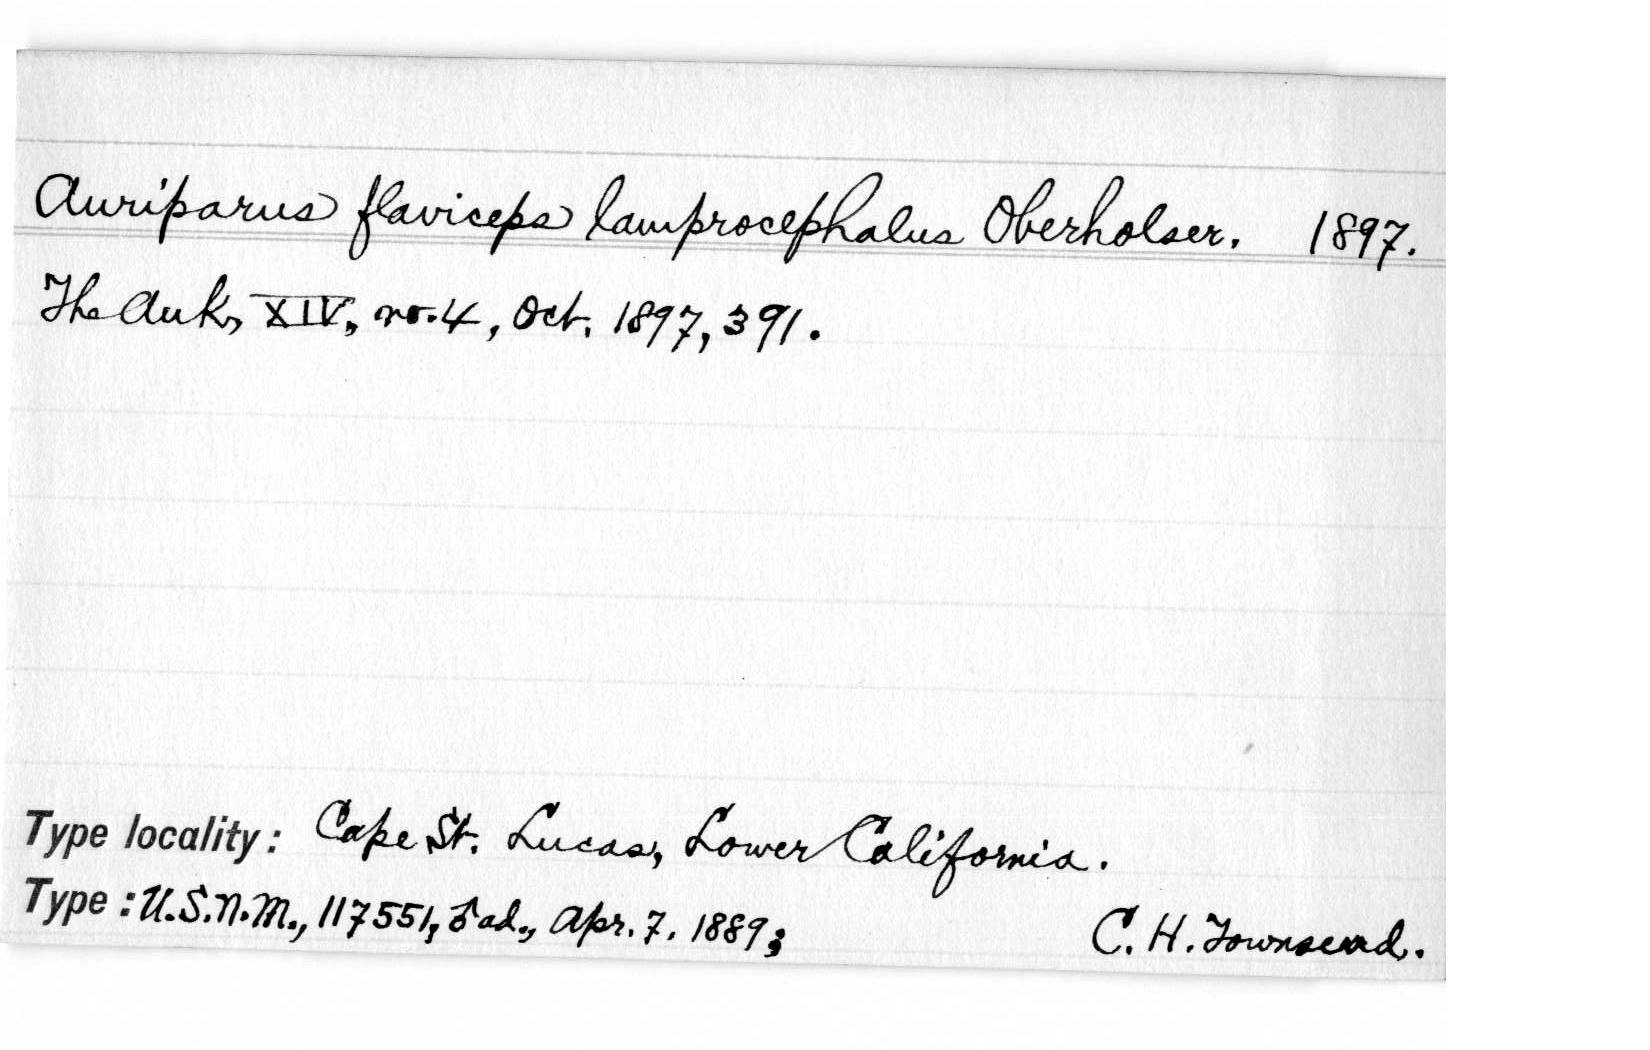 Auriparus flaviceps lamprocephalus Oberholser. 1897.
The Auk, XIV, no. 4, Oct. 1897, 391.
Type locality: Cape St. Lucas, Lower California.
Type: U.S.N.M., 117551, ♂ ad., Apr. 7. 1889; C. H. Townsend.